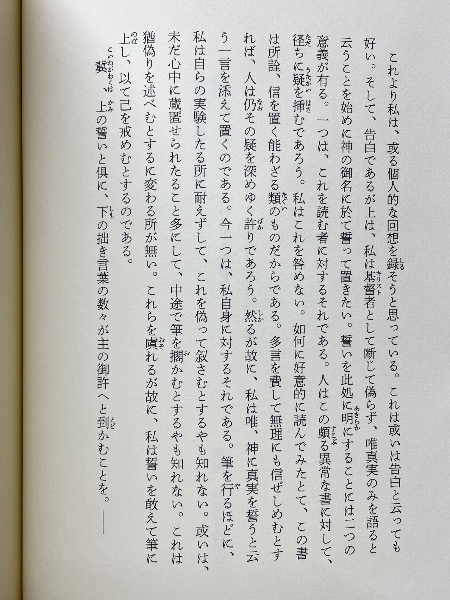 これより私は、或る個人的な回想を録そうと思っている。これは或いは告白と云っても
好い。そして、告白であるが上は、私は基督者として断じて偽らず、唯真実のみを語ると
云うことを始めに神の御名に於て誓って置きたい。誓いを此処に明にすることには二つの
意義が有る。一つは、これを読む者に対するそれである。人はこの頗る異常な書に対して、
径ちに疑を挿むであろう。私はこれを咎めない。如何に好意的に読んでみたとて、この書
は所詮、信を置く能わざる類のものだからである。多言を費して無理にも信ぜしめむとす
れば、人は仍その疑を深めゆく許りであろう。然るが故に、私は唯、神に真実を誓うと云
う一言を添えて置くのである。今一つは、私自身に対するそれである。筆を行るほどに、
私は自らの実験したる所に耐えずして、これを偽って叙さむとするやも知れない。或いは、
未だ心中に蔵匿せられたること多にして、中途で筆を擱かむとするやも知れない。これは
猶偽りを述べむとするに変わる所が無い。これらを虞れるが故に、私は誓いを敢えて筆に
上し、以て己を戒めむとするのである。
冀、上の誓いと倶に、下の拙き言葉の数々が主の御許へと到かむことを。――